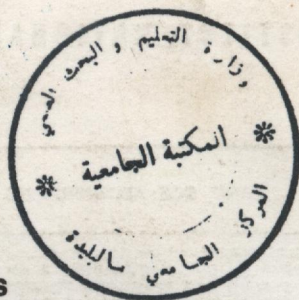 وزارة التعليم و البحث العلمي
المكتبة الجامعية
المركز الجامعي بالبليدة
s